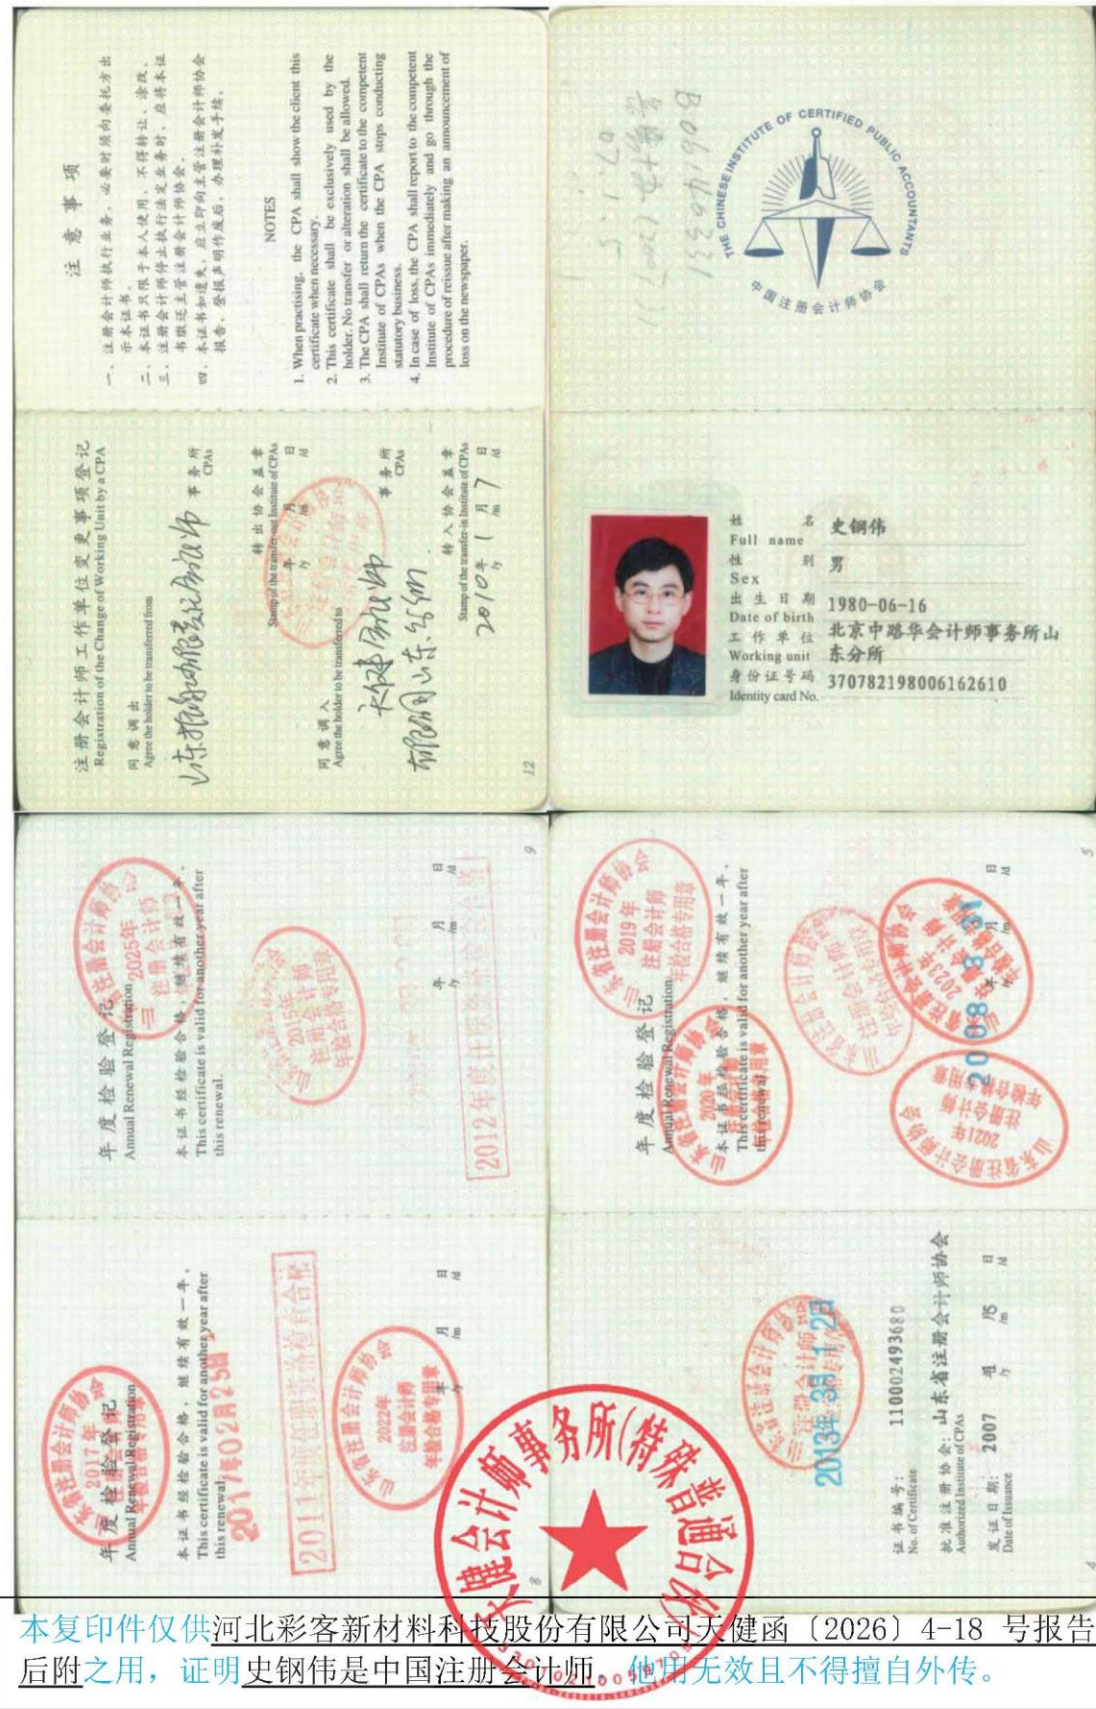 注意事项
一、注册会计师执行业务，必要时须向委托方出
示本证书。
二、本证书只限于本人使用，不得转让、涂改。
三、注册会计师停止执行法定业务时，应将本证
书缴还主管注册会计师协会。
四、本证书如遗失，应立即向主管注册会计师协会
报告，登报声明作废后，办理补发手续。
NOTES
1. When practising, the CPA shall show the client this
certificate when necessary.
2. This certificate shall be exclusively used by the
holder. No transfer or alteration shall be allowed.
3. The CPA shall return the certificate to the competent
Institute of CPAs when the CPA stops conducting
statutory business.
4. In case of loss, the CPA shall report to the competent
Institute of CPAs immediately and go through the
procedure of reissue after making an announcement of
loss on the newspaper.
注册会计师工作单位变更事项登记
Registration of the Change of Working Unit by a CPA
同意调出
Agree the holder to be transferred from
事务所
CPAs
转出协会盖章
Stamp of the transfer-out Institute of CPAs
年 月 日
/y /m /d
同意调入
Agree the holder to be transferred to
天健
事务所
CPAs
山东
转入协会盖章
Stamp of the transfer-in Institute of CPAs
2010年 1月 7日
/y /m /d
12
THE CHINESE INSTITUTE OF CERTIFIED PUBLIC ACCOUNTANTS
中国注册会计师协会
姓名 史钢伟
Full name
性别 男
Sex
出生日期 1980-06-16
Date of birth
工作单位 北京中路华会计师事务所山
Working unit 东分所
身份证号码 370782198006162610
Identity card No.
年度检验登记
Annual Renewal Registration
本证书经检验合格，继续有效一年。
This certificate is valid for another year after
this renewal.
山东省注册会计师协会
2025年
注册会计师
2015年
注册会计师
年检合格专用章
年 月 日
/y /m /d
9
年度检验登记
Annual Renewal Registration
本证书经检验合格，继续有效一年。
This certificate is valid for another year after
this renewal.
山东省注册会计师协会
2019年
注册会计师
年检合格专用章
山东省注册会计师协会
2020年
山东省注册会计师协会
2021年
注册会计师
年检合格专用章
2023年
2008
日
/d
5
年度检验登记
Annual Renewal Registration
本证书经检验合格，继续有效一年。
This certificate is valid for another year after
this renewal.
山东省注册会计师协会
2017年
2017年02月25日
2011年度任职资格检查合格
山东省注册会计师协会
2022年
注册会计师
年检合格专用章
月 日
/y /m /d
8
2013年3月12日
证书编号： 110002493680
No. of Certificate
批准注册协会： 山东省注册会计师协会
Authorized Institute of CPAs
发证日期： 2007
Date of Issuance /y /m /d
4
天健会计师事务所(特殊普通合伙)
本复印件仅供河北彩客新材料科技股份有限公司天健函〔2026〕4-18 号报告
后附之用，证明史钢伟是中国注册会计师。他用无效且不得擅自外传。